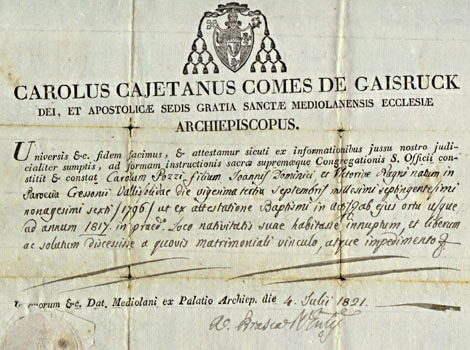 CAROLUS CAJETANUS COMES DE GAISRUCK
DEI, ET APOSTOLICÆ SEDIS GRATIA SANCTÆ MEDIOLANENSIS ECCLESIÆ
ARCHIEPISCOPUS.
Universis &c. fidem facimus, & attestamur sicuti ex informationibus jussu nostro judi-
cialiter sumptis, ad formam instructionis sacræ supremæque Congregationis S. Officii con-
stitit & constat Carolum Pozzi filium Joannis Dominici, et Victoriæ Regni natum in
Parœcia die vigesima tertia Septembris millesimi septingentesimi
nonagesimi sexti /1796/ ut ex attestatione Baptismi in ab ejus ortu usque
ad annum 1817. in præd. Loco nativitatis suæ habitasse innuptum, et liberum
ac solutum discessisse a quovis matrimoniali vinculo, atque impedimento
&c. Dat. Mediolani ex Palatio Archiep. die 4. Julii 1821.